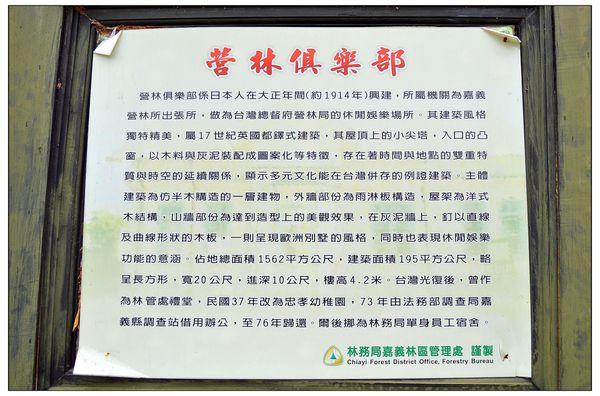 營林俱樂部
營林俱樂部係日本人在大正年間(約1914年)興建，所屬機關為嘉義
營林所出張所，做為台灣總督府營林局的休閒娛樂場所。其建築風格
獨特精美，屬17世紀英國都鐸式建築，其屋頂上的小尖塔，入口的凸
窗，以木料與灰泥裝配成圖案化等特徵，存在著時間與地點的雙重特
質與時空的延續關係，顯示多元文化能在台灣併存的例證建築。主體
建築為仿半木構造的一層建物，外牆部份為雨淋板構造，屋架為洋式
木結構，山牆部份為達到造型上的美觀效果，在灰泥牆上，釘以直線
及曲線形狀的木板，一則呈現歐洲別墅的風格，同時也表現休閒娛樂
功能的意涵。佔地總面積1562平方公尺，建築面積195平方公尺，略
呈長方形，寬20公尺，進深10公尺，樓高4.2米。台灣光復後，曾作
為林管處禮堂，民國37年改為忠孝幼稚園，73年由法務部調查局嘉
義縣調查站借用辦公，至76年歸還。爾後挪為林務局單身員工宿舍。
林務局嘉義林區管理處 謹製
Chiayi Forest District Office, Forestry Bureau